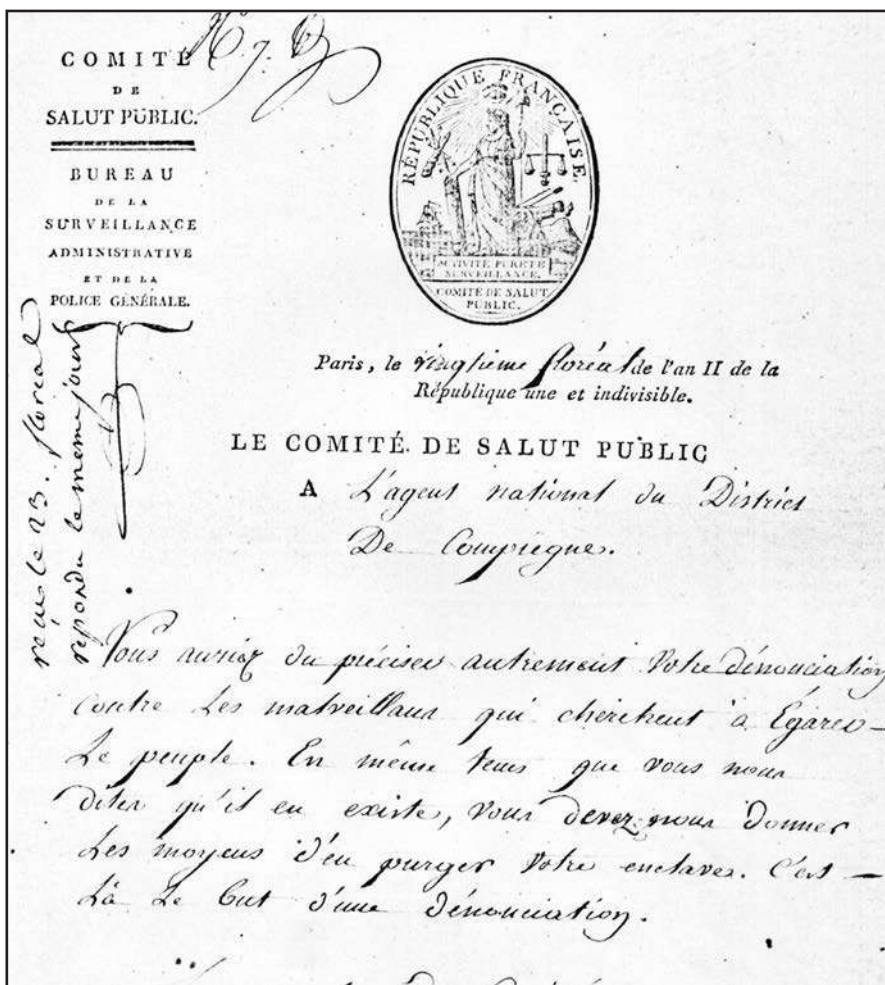 COMITÉ
DE
SALUT PUBLIC.
BUREAU
DE LA
SURVEILLANCE
ADMINISTRATIVE
ET DE LA
POLICE GÉNÉRALE.
RÉPUBLIQUE FRANÇAISE.
ACTIVITÉ PURETÉ
SURVEILLANCE.
COMITÉ DE SALUT
PUBLIC.
reçu le 23. floréal
répondu le même jour
Paris, le vingtieme floréal de l'an II de la
République une et indivisible.
LE COMITÉ DE SALUT PUBLIC
A L'agent national du District
De Compiegne.
Vous auriez du préciser autrement votre dénonciation
contre les malveillans qui cherchent à Égarer
Le peuple. En même tems que vous nous
dites qu'il en existe, vous devez nous donner
Les moyens d'en purger votre enclave. C'est
Là Le but d'une dénonciation.